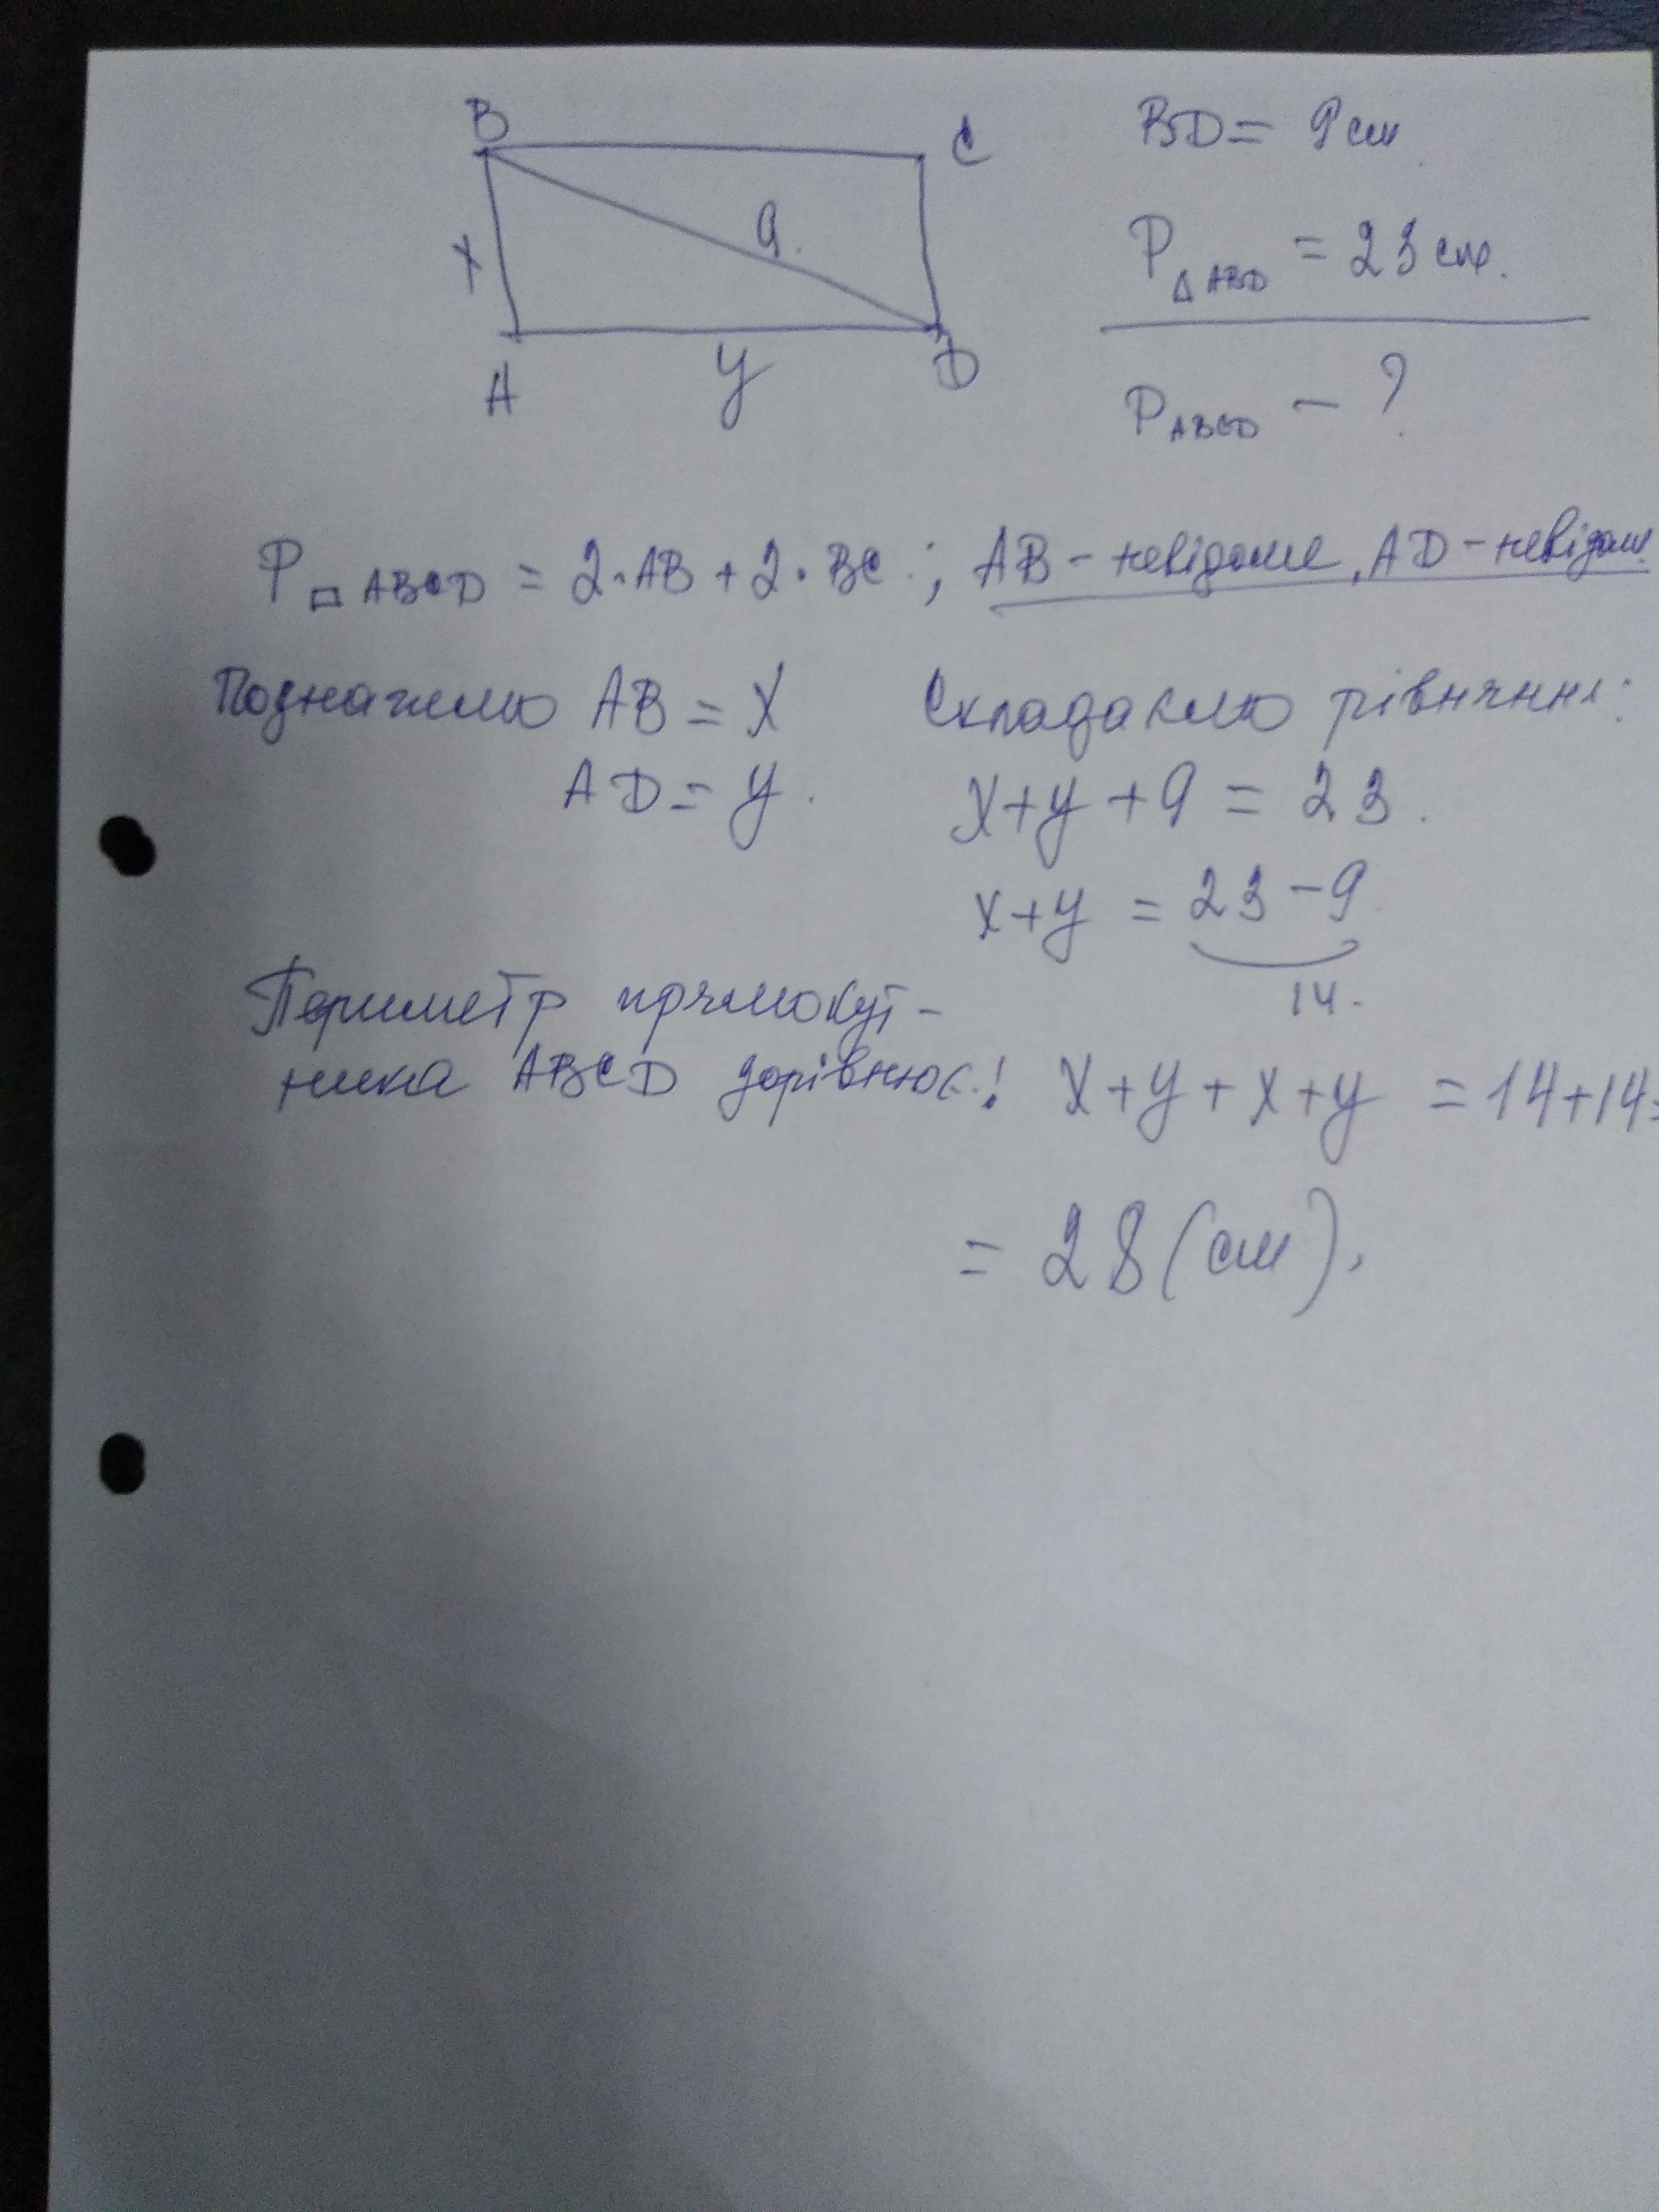 B C BD = 9 см
x 9. P△ABD = 23 см.
A y D PABCD – ?
P▭ABCD = 2·AB + 2·BC.; AB – невідоме, AD – невідоме
Позначимо AB = x Складаємо рівняння:
AD = y. x + y + 9 = 23.
x + y = 23 – 9
14.
Периметр прямокут-
ника ABCD дорівнює: x + y + x + y = 14 + 14 =
= 28 (см).